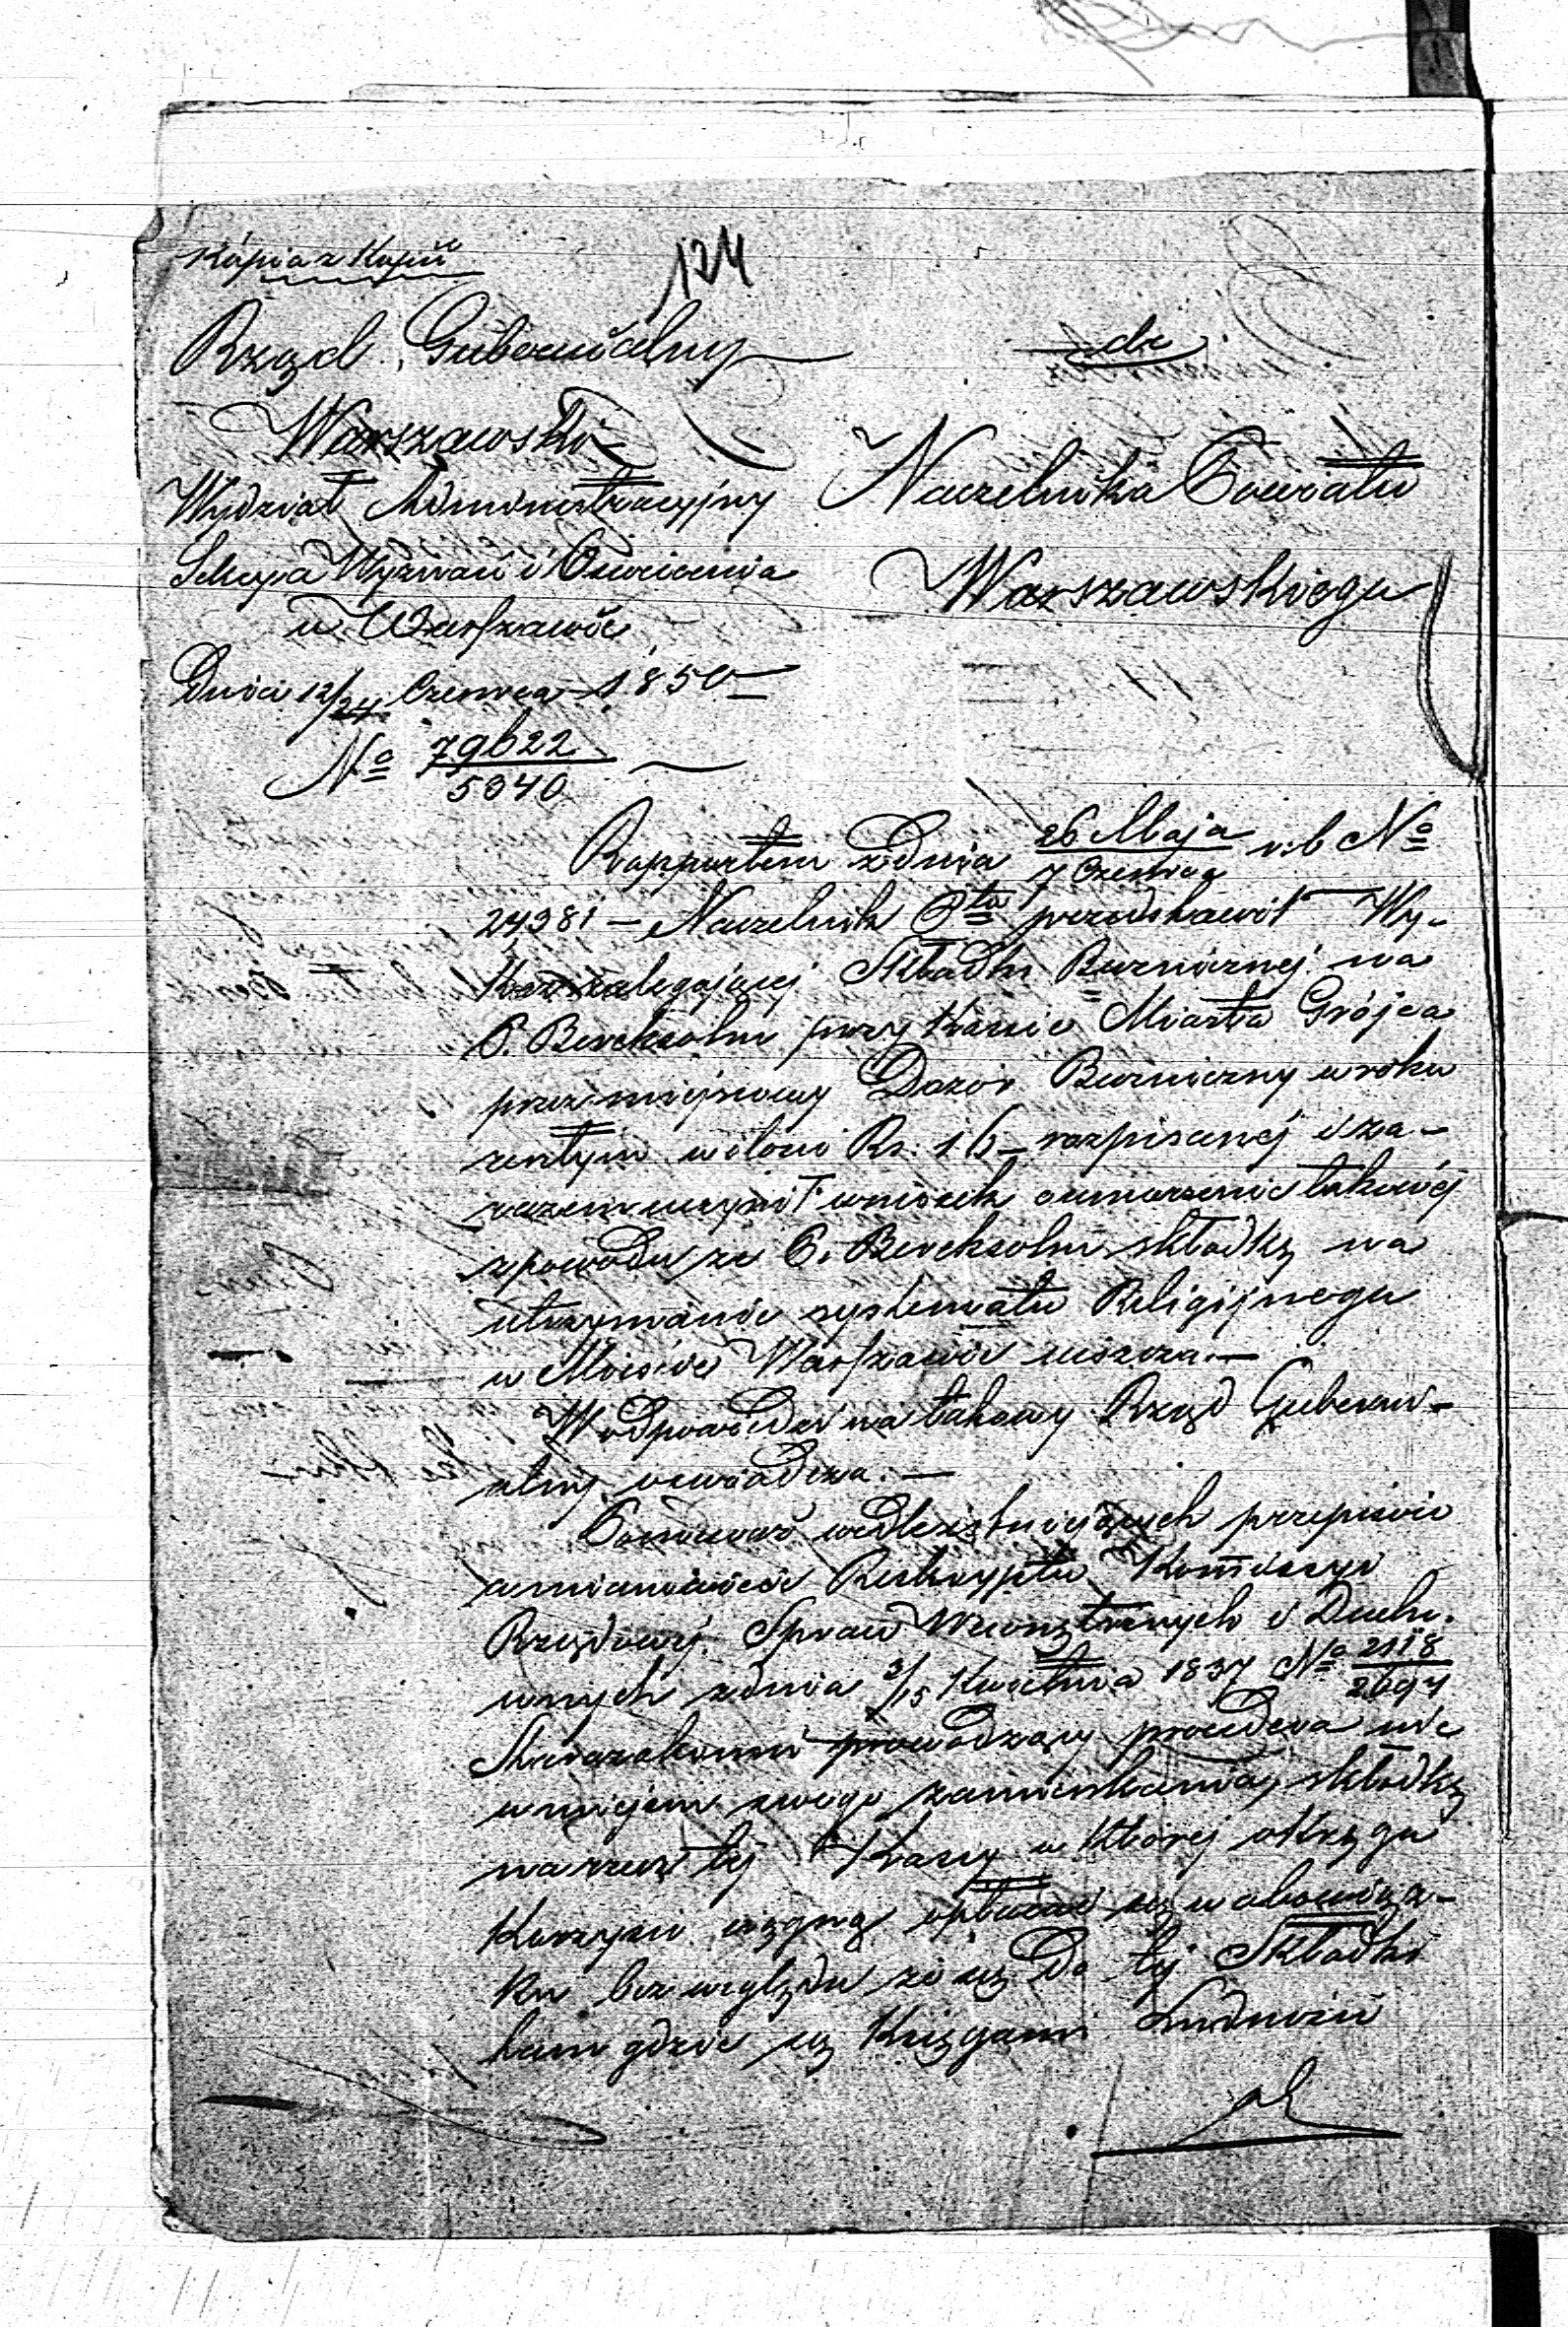 Kópia z Kopii
124
Rząd Gubernialny
Warszawski
Wydział Administracyjny
Sekcya Wyznań i Oświecenia
w Warszawie
Dnia 12/24 Czerwca 1850
No 79622/5040
do
Naczelnika Powiatu
Warszawskiego
Rapportem z dnia 26 Maja/7 Czerwca r.b No
24381 — Naczelnik Ptu przedstawił Wy-
kaz zalegającej Składki Bożnicznej na
P. Bereksohn przy Kassie Miasta Grójca
przez miejscowy Dozór Bożniczny w roku
zeszłym w ilości Rs. 16 — rozpisanej i za-
razem uczynił wniosek o umorzenie takowéj
z powodu że P. Bereksohn składkę na
utrzymanie systematu Religijnego
w Mieście Warszawie uiszcza. —
W odpowiedzi na takowy Rząd Guberni-
alny oświadcza. —
Ponieważ wedle istniejących przepisów
a mianowicie Reskryptu Kommissyi
Rządowéj Spraw Wewnętrznych i Ducho-
wnych z dnia 3/15 Kwietnia 1837 No 2118/2697
Starozakonni prowadzący procedera nie
w miejscu swego zamieszkania, składkę
na rzecz téj Kassy w któréj okręgu
Korzyści ciągną opłacać są w obowiąz-
ku bez względu że są do téj Składki
tam gdzie są Księgami Ludności